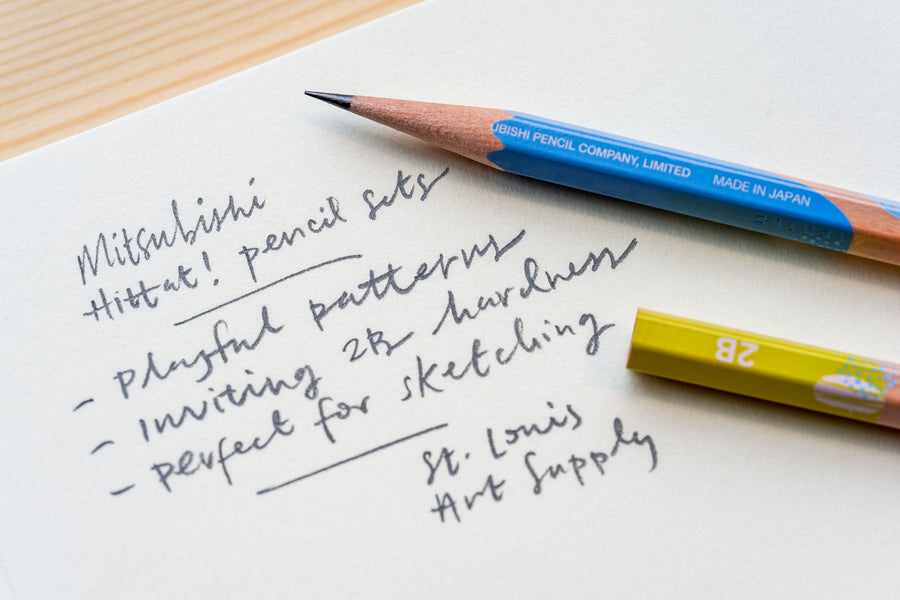 Mitsubishi
Hittat! pencil sets
- playful patterns
- inviting 2B hardness
- perfect for sketching
St. Louis
Art Supply
UBISHI PENCIL COMPANY, LIMITED MADE IN JAPAN
2B